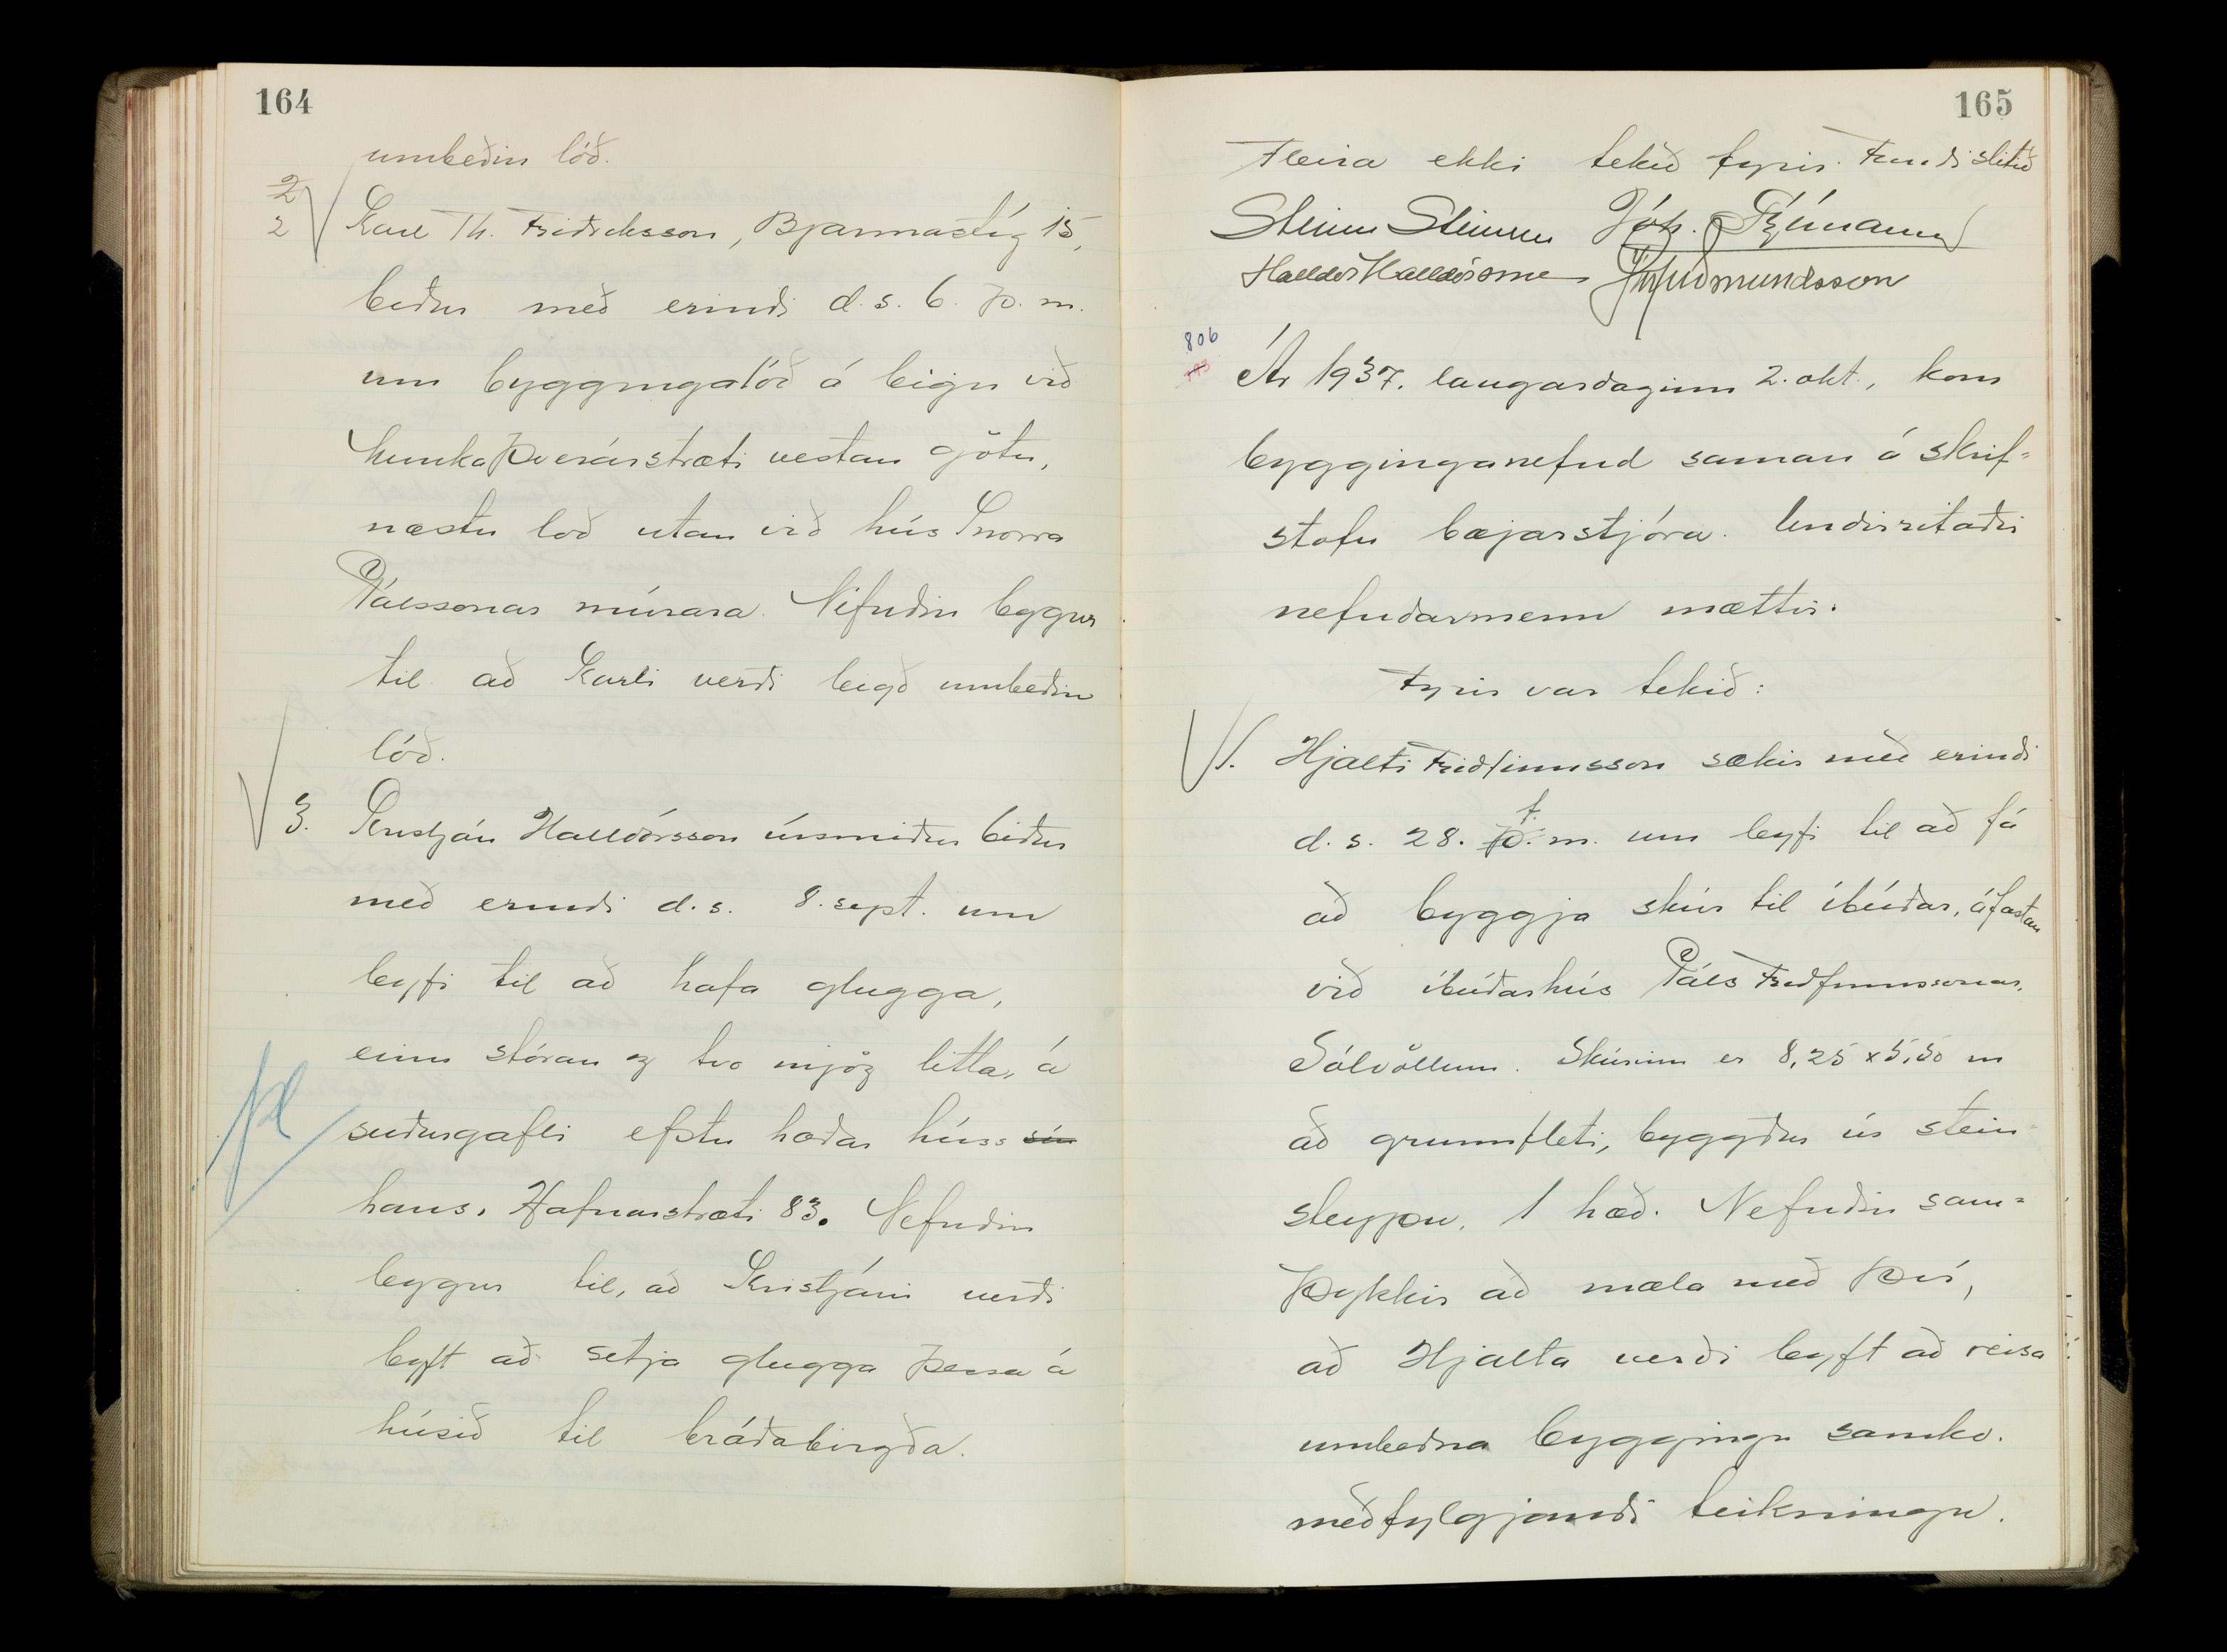 164
umbeðin lóð.
2
2 Karl Th. Friðriksson, Bjarmastíg 15,
biður með erindi d.s. 6. þ.m.
um byggingalóð á leigu við
Munkaþverárstræti vestan götu,
næstu lóð utan við hús Snorra
Pálssonar múrara. Nefndin leggur
til að Karli verði leigð umbeðin
lóð.
3. Kristján Halldórsson úrsmiður biður
með erindi d.s. 8. sept. um
leyfi til að hafa glugga,
einn stóran og tvo mjög litla, á
suðurgafli efstu hæðar húss sín
hans, Hafnarstræti 83. Nefndin
leggur til, að Kristjáni verði
leyft að setja glugga þessa á
húsið til bráðabirgða.
165
Fleira ekki tekið fyrir. Fundi slitið
Steinn Steinsen Jóh. Frímann
Halldór Halldórsson Guðmundsson
806
773
Ár 1937, laugardaginn 2. okt., kom
bygginganefnd saman á skrif-
stofu bæjarstjóra. Undirritaðir
nefndarmenn mættir.
Fyrir var tekið:
1. Hjalti Friðfinnsson sækir með erindi
d.s. 28. þ. f. m. um leyfi til að fá
að byggja skúr til íbúðar, áfastan
við íbúðarhús Páls Friðfinnssonar,
Sólvöllum. Skúrinn er 8,25 x 5,50 m
að grunnfleti, byggður úr stein-
steypu, 1 hæð. Nefndin sam-
þykkir að mæla með því,
að Hjalta verði leyft að reisa
umbeðna byggingu samkv.
meðfylgjandi teikningu.